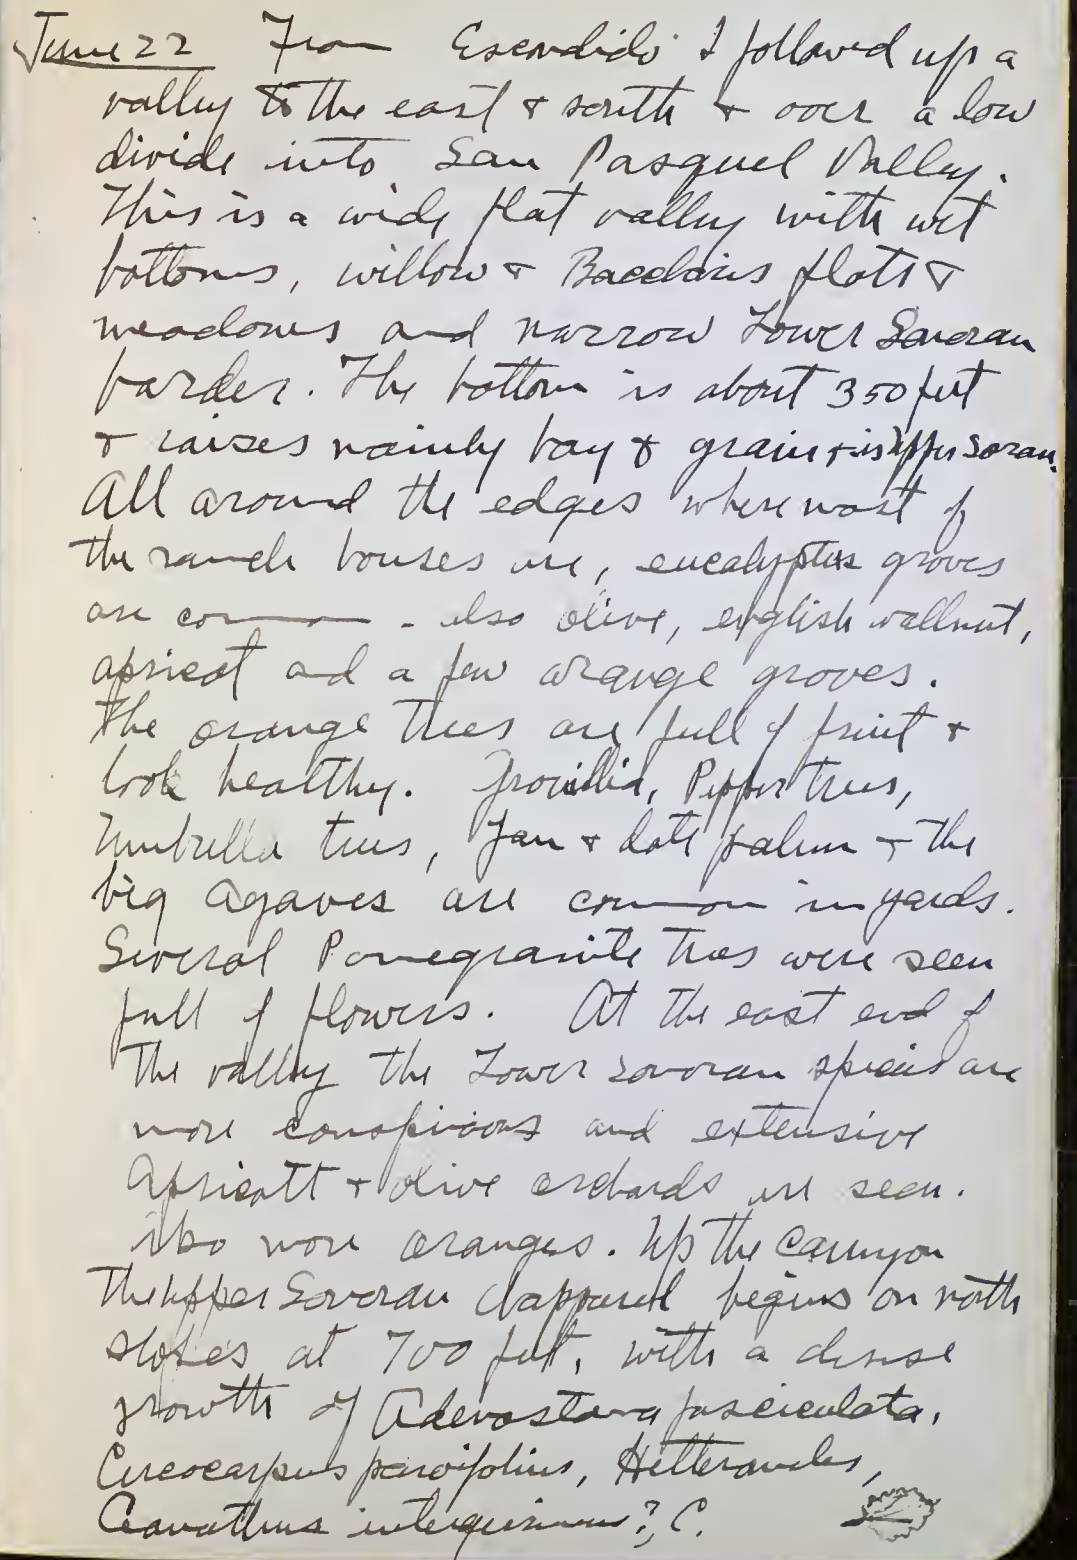 June 22 From Escondido I followed up a
valley to the east & south & over a low
divide into San Pasquel Valley.
This is a wide flat valley with wet
bottoms, willow & Baccharis flats &
meadows and narrow Lower Sonoran
border. The bottom is about 350 feet
& raises mainly hay & grain & is Upper Sonoran.
All around the edges where most of
the ranch houses are, eucalyptus groves
are common - also olive, english wallnut,
apricot and a few orange groves.
The orange trees are full of fruit &
look healthy. Grevillia, Pepper trees,
Umbrella trees, fan & date palm & the
big agaves are common in yards.
Several Pomegranite trees were seen
full of flowers. At the east end of
the valley the Lower Sonoran species are
more conspicious and extensive
Apricott & olive orchards are seen.
Also more oranges. Up the cannyon
the Upper Sonoran chapparal begins on north
slopes at 700 feet, with a dense
growth of Adenostoma fasciculata,
Cercocarpus parvifolius, Hetteromeles,
Ceanothus intergerimus?, C.